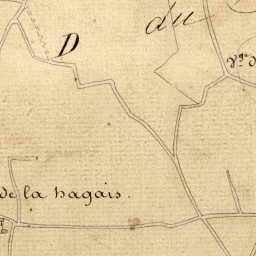 du
D
de la hagais.